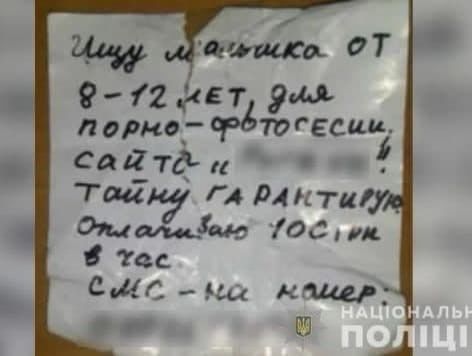 Ищу мальчика от
8-12 лет, для
порно-фотосесии,
сайта "
тайну гарантирую
оплачиваю
в час.
СМС - на номер:
НАЦІОНАЛЬН
ПОЛІЦІ